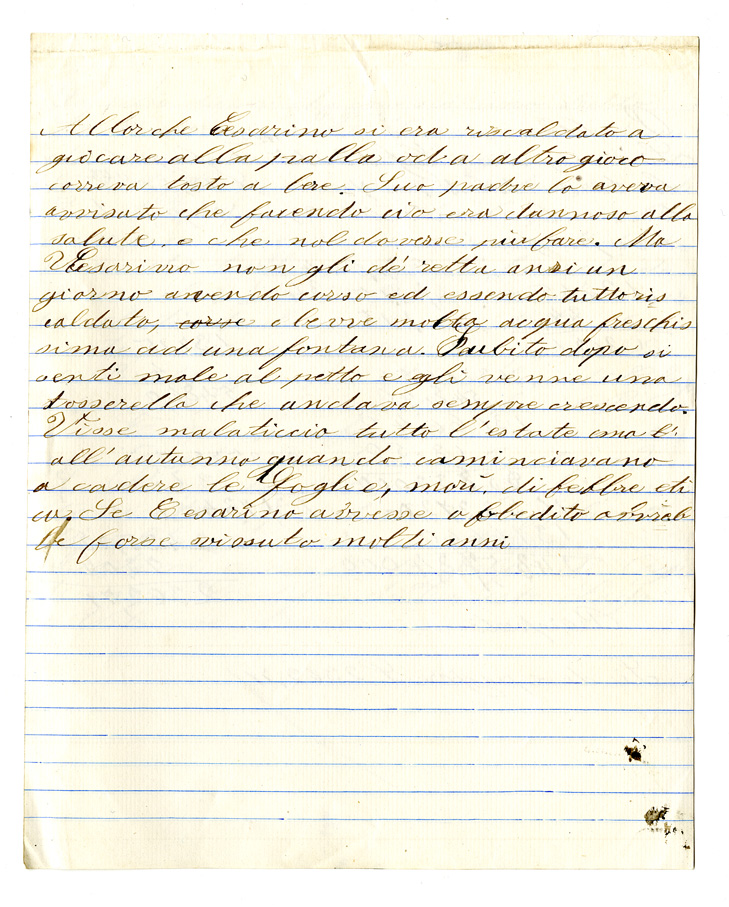 Allorche Cesarino si era riscaldato a
giocare alla palla od a altro gioco
correva tosto a bere. Suo padre lo aveva
avvisato che facendo ciò era dannoso alla
salute, e che nol dovesse più fare. Ma
Cesarino non gli dé retta anzi un
giorno avendo corso ed essendo tutto ris
caldato, corse e bevve molta acqua freschis
sima ad una fontana. Subito dopo si
senti male al petto e gli venne una
tosserella che andava sempre crescendo.
Visse malaticcio tutto l'estate ma
all'autunno quando caminciavano
a cadere le foglie, morì, di febbre eti
ca. Se Cesarino avesse obbedito avreb
be forse vissuto molti anni